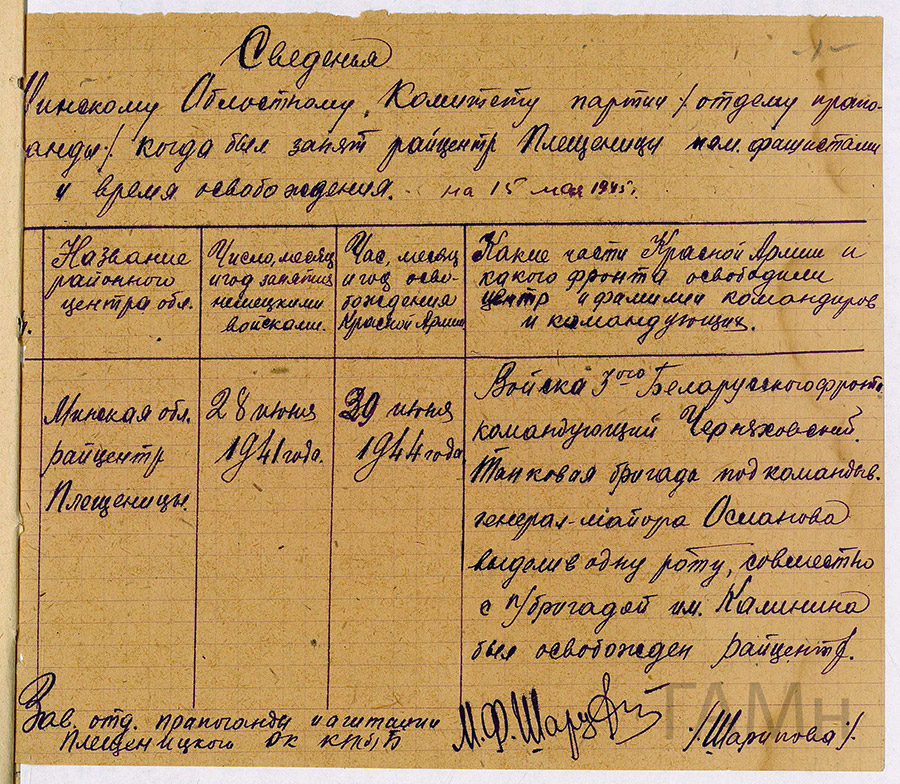 Сведенья
-1-
Минскому Областному Комитету партии /отделу пропо-
ганды/. когда был занят райцентр Плещеницы нем. фашистами
и время освобождения. на 15 мая 1945г.
Название
районного
центра обл.
Число, месяц
и год занятия
немецкими
войсками.
Час, месяц
и год осво-
бождения
Красной Армии
Какие части Красной Армии и
какого фронта освободили
центр и фамилии командиров
и командующих.
Минская обл.
райцентр
Плещеницы.
28 июня
1941 года.
29 июня
1944 года
Войска 3ого Беларусского фронта
командующий Черняховский.
Танковая бригада под командыв.
генерал-майора Османова
выделив одну роту, совместно
с п/бригадой им. Калинина
был освобожден райцентр.
Зав. отд. прапоганды и агитации
Плещеницкого РК КП(б)Б
М.Ф.
/Шарипова/.
ГАМн